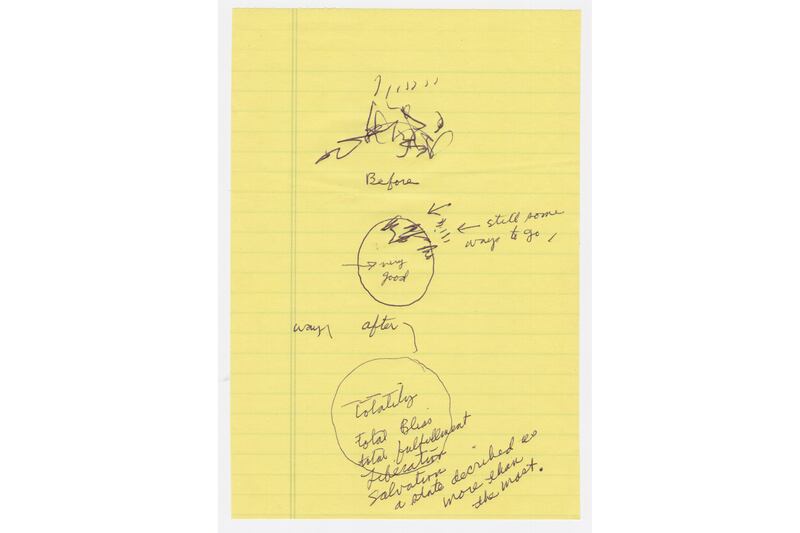 Before
still some
ways to go,
very
good
way after
Totality
total Bliss
total fulfillment
Liberation
Salvation
a state decribed as
more than
the most.